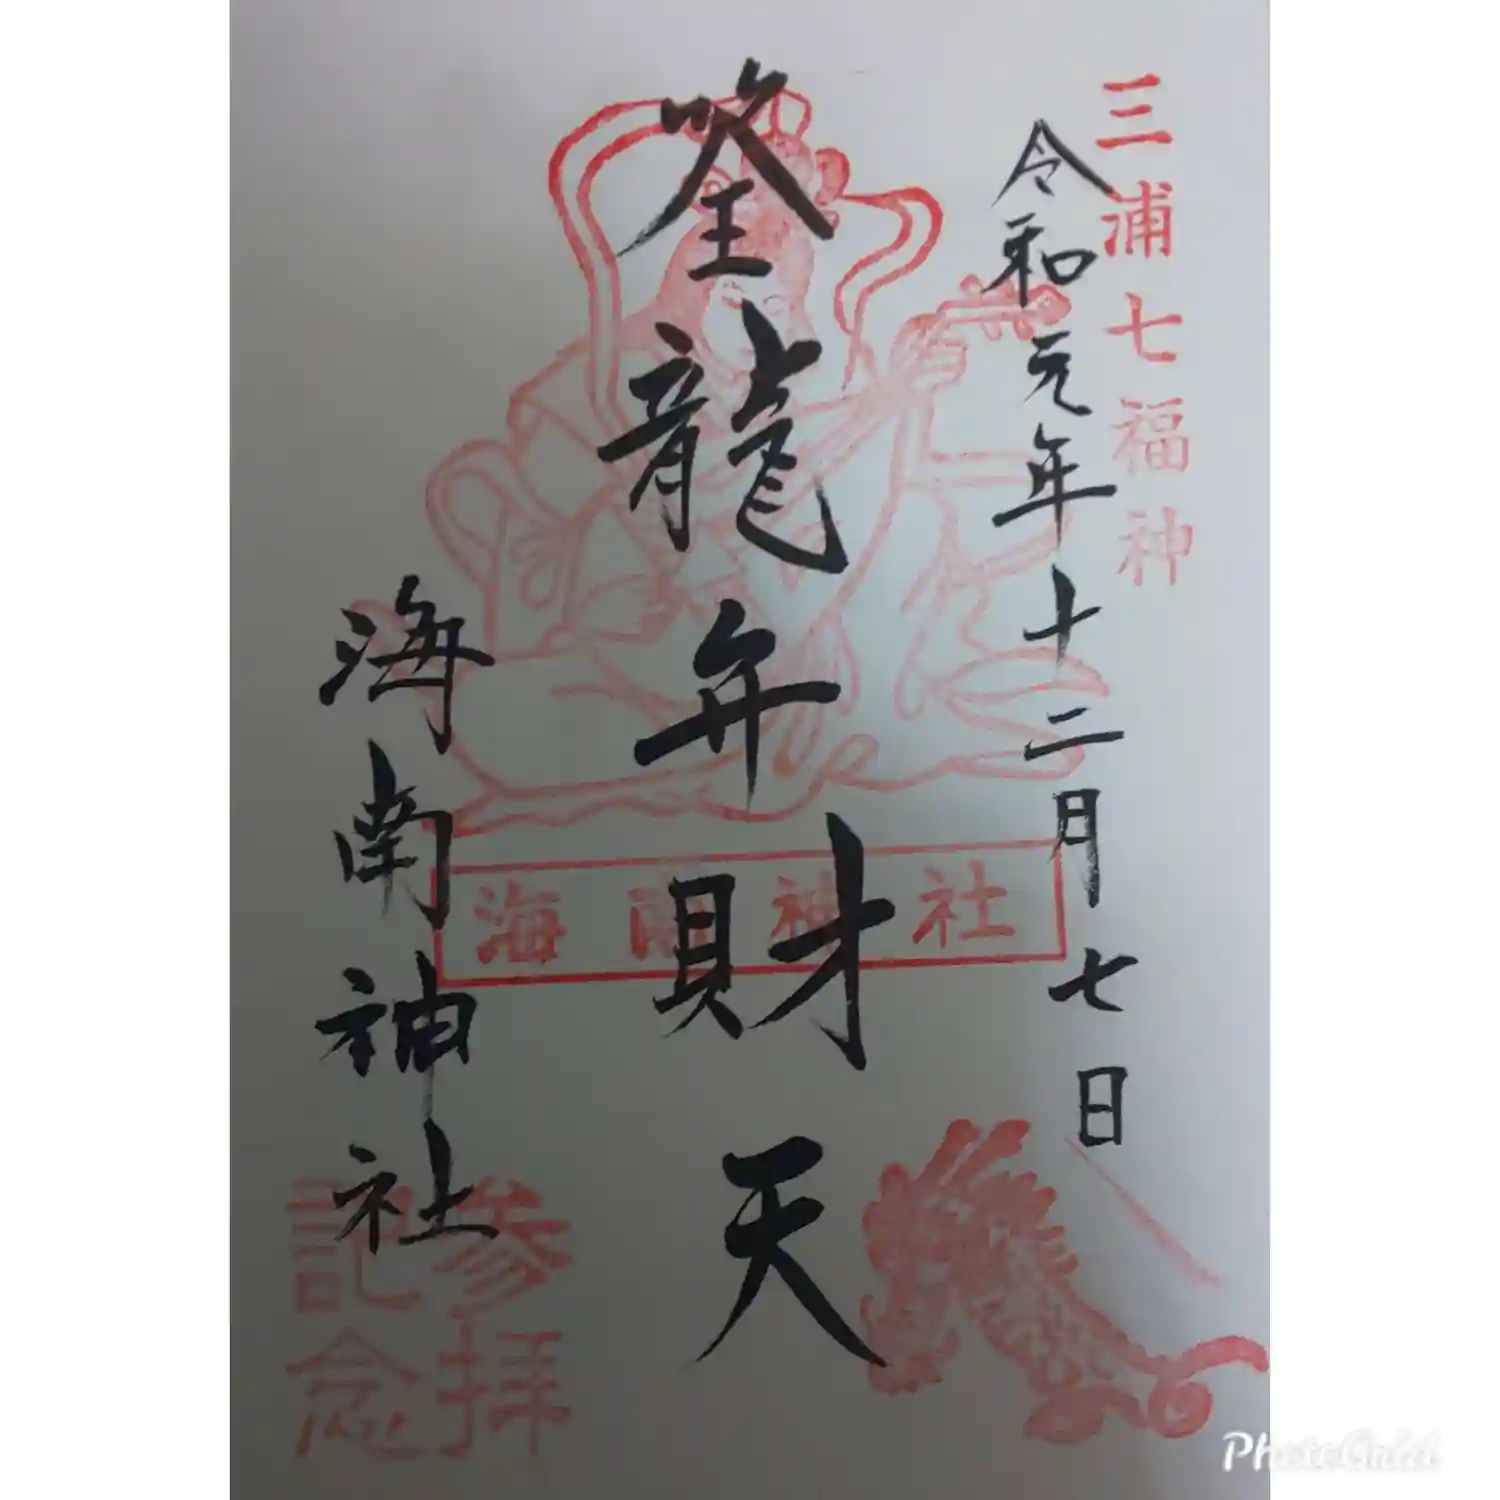 三浦七福神
令和元年十二月七日
筌龍弁財天
海南神社
海南神社
参拝
記念
PhotoGrid